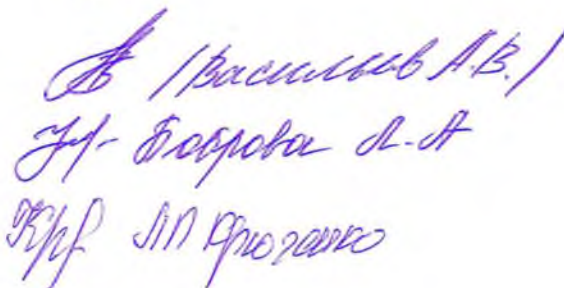 /Васильев А.В./
Боброва Л.А
ЛП Крюченко